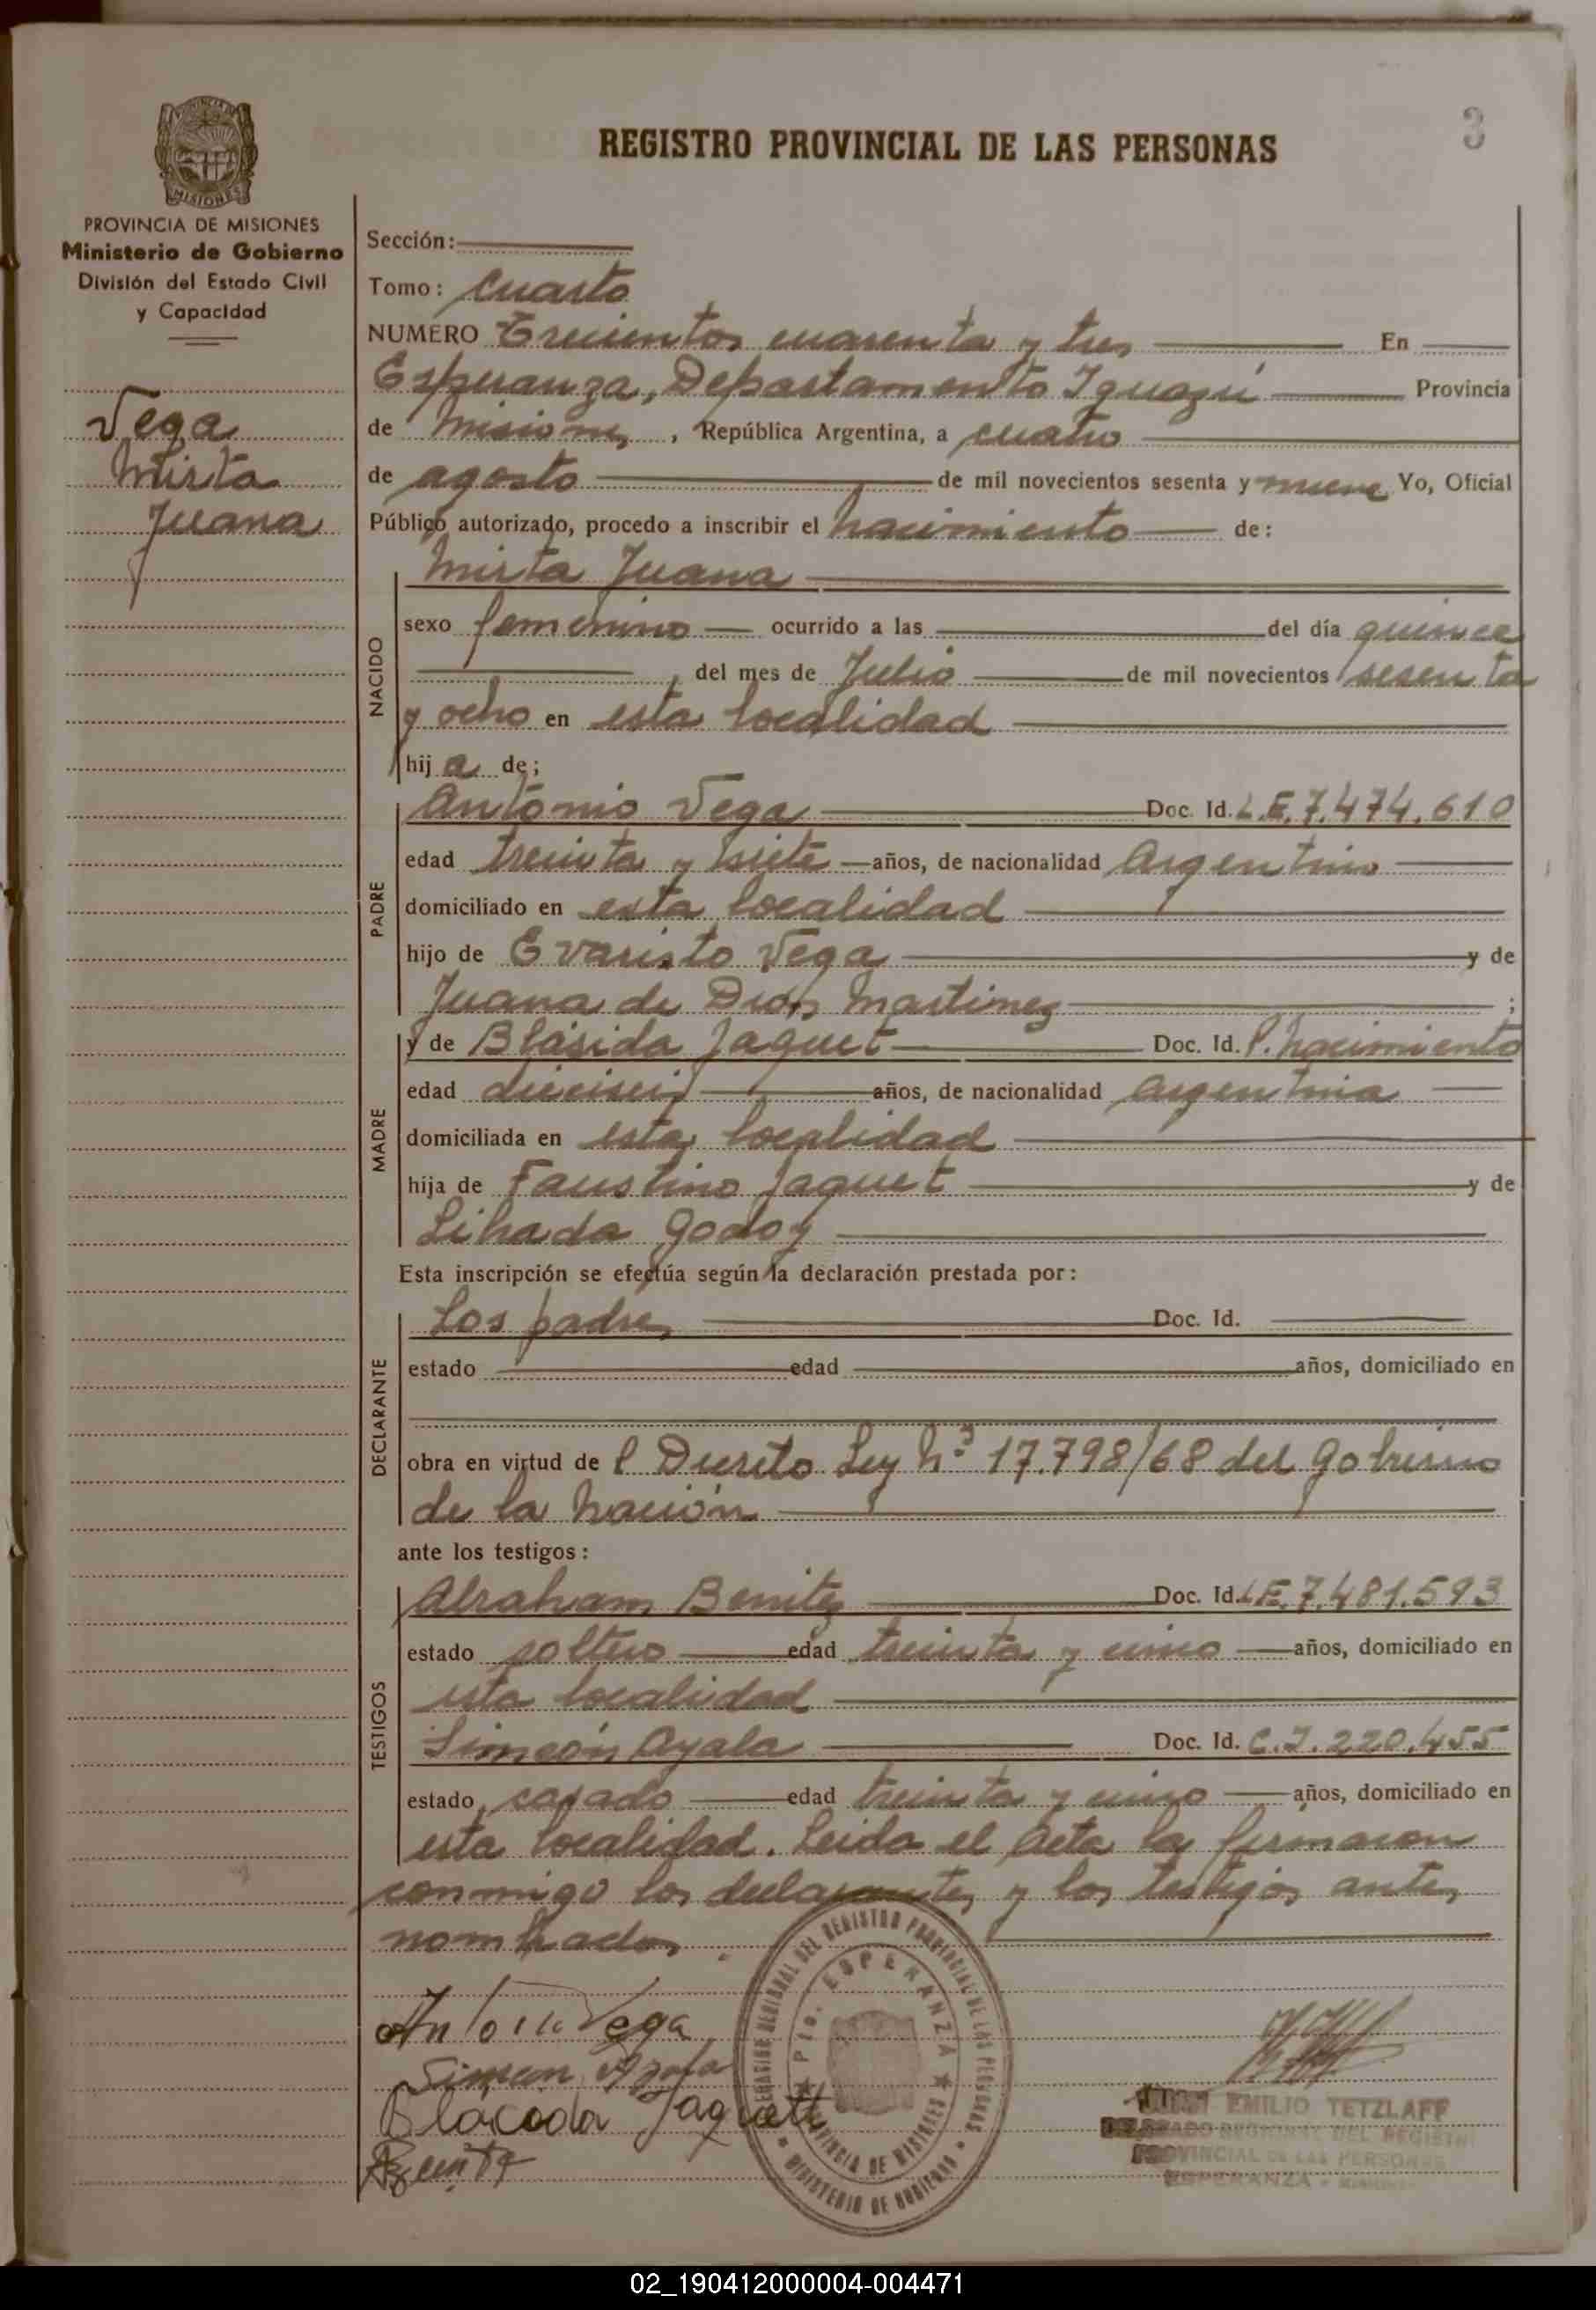 REGISTRO PROVINCIAL DE LAS PERSONAS
3
PROVINCIA DE MISIONES
Ministerio de Gobierno
División del Estado Civil
y Capacidad
Vega
Mirta
Juana
Sección:
Tomo: Cuarto
NUMERO Trecientos cuarenta y tres En
Esperanza, Departamento Iguazú Provincia
de Misiones, República Argentina, a cuatro
de agosto de mil novecientos sesenta y nueve Yo, Oficial
Público autorizado, procedo a inscribir el nacimiento de:
Mirta Juana
NACIDO
sexo femenino ocurrido a las del día quince
, del mes de Julio de mil novecientos sesenta
y ocho en esta localidad
hij a de;
PADRE
Antonio Vega Doc. Id. L.E.7.474.610
edad treinta y siete años, de nacionalidad Argentino
domiciliado en esta localidad
hijo de Evaristo Vega y de
Juana de Dios Martinez ;
MADRE
y de Blásida Jaquet Doc. Id. P. nacimiento
edad dieciseis años, de nacionalidad Argentina
domiciliada en esta localidad
hija de Faustino Jaquet y de
Lihada Godoy
Esta inscripción se efectúa según la declaración prestada por:
DECLARANTE
Los padres Doc. Id.
estado edad años, domiciliado en
obra en virtud de l Decreto Ley Nº 17.798/68 del Gobierno
de la Nación
ante los testigos:
TESTIGOS
Abraham Benitez Doc. Id. L.E.7.481.593
estado soltero edad treinta y cinco años, domiciliado en
esta localidad
Simeón Ayala Doc. Id. C.I. 220.455
estado casado edad treinta y cinco años, domiciliado en
esta localidad. Leida el Acta la firmaron
conmigo los declarantes y los testigos antes
nombrados.
Antonio Vega
Simeon Ayala
Blacoda Jaquett
DEL REGISTRO PROVINCIAL DE LAS PERSONAS
Pto. ESPERANZA
PROVINCIA DE MISIONES
MINISTERIO DE GOBIERNO
JUAN EMILIO TETZLAFF
DELEGADO REGIONAL DEL REGISTRO
PROVINCIAL DE LAS PERSONAS
ESPERANZA - MISIONES
02_190412000004-004471